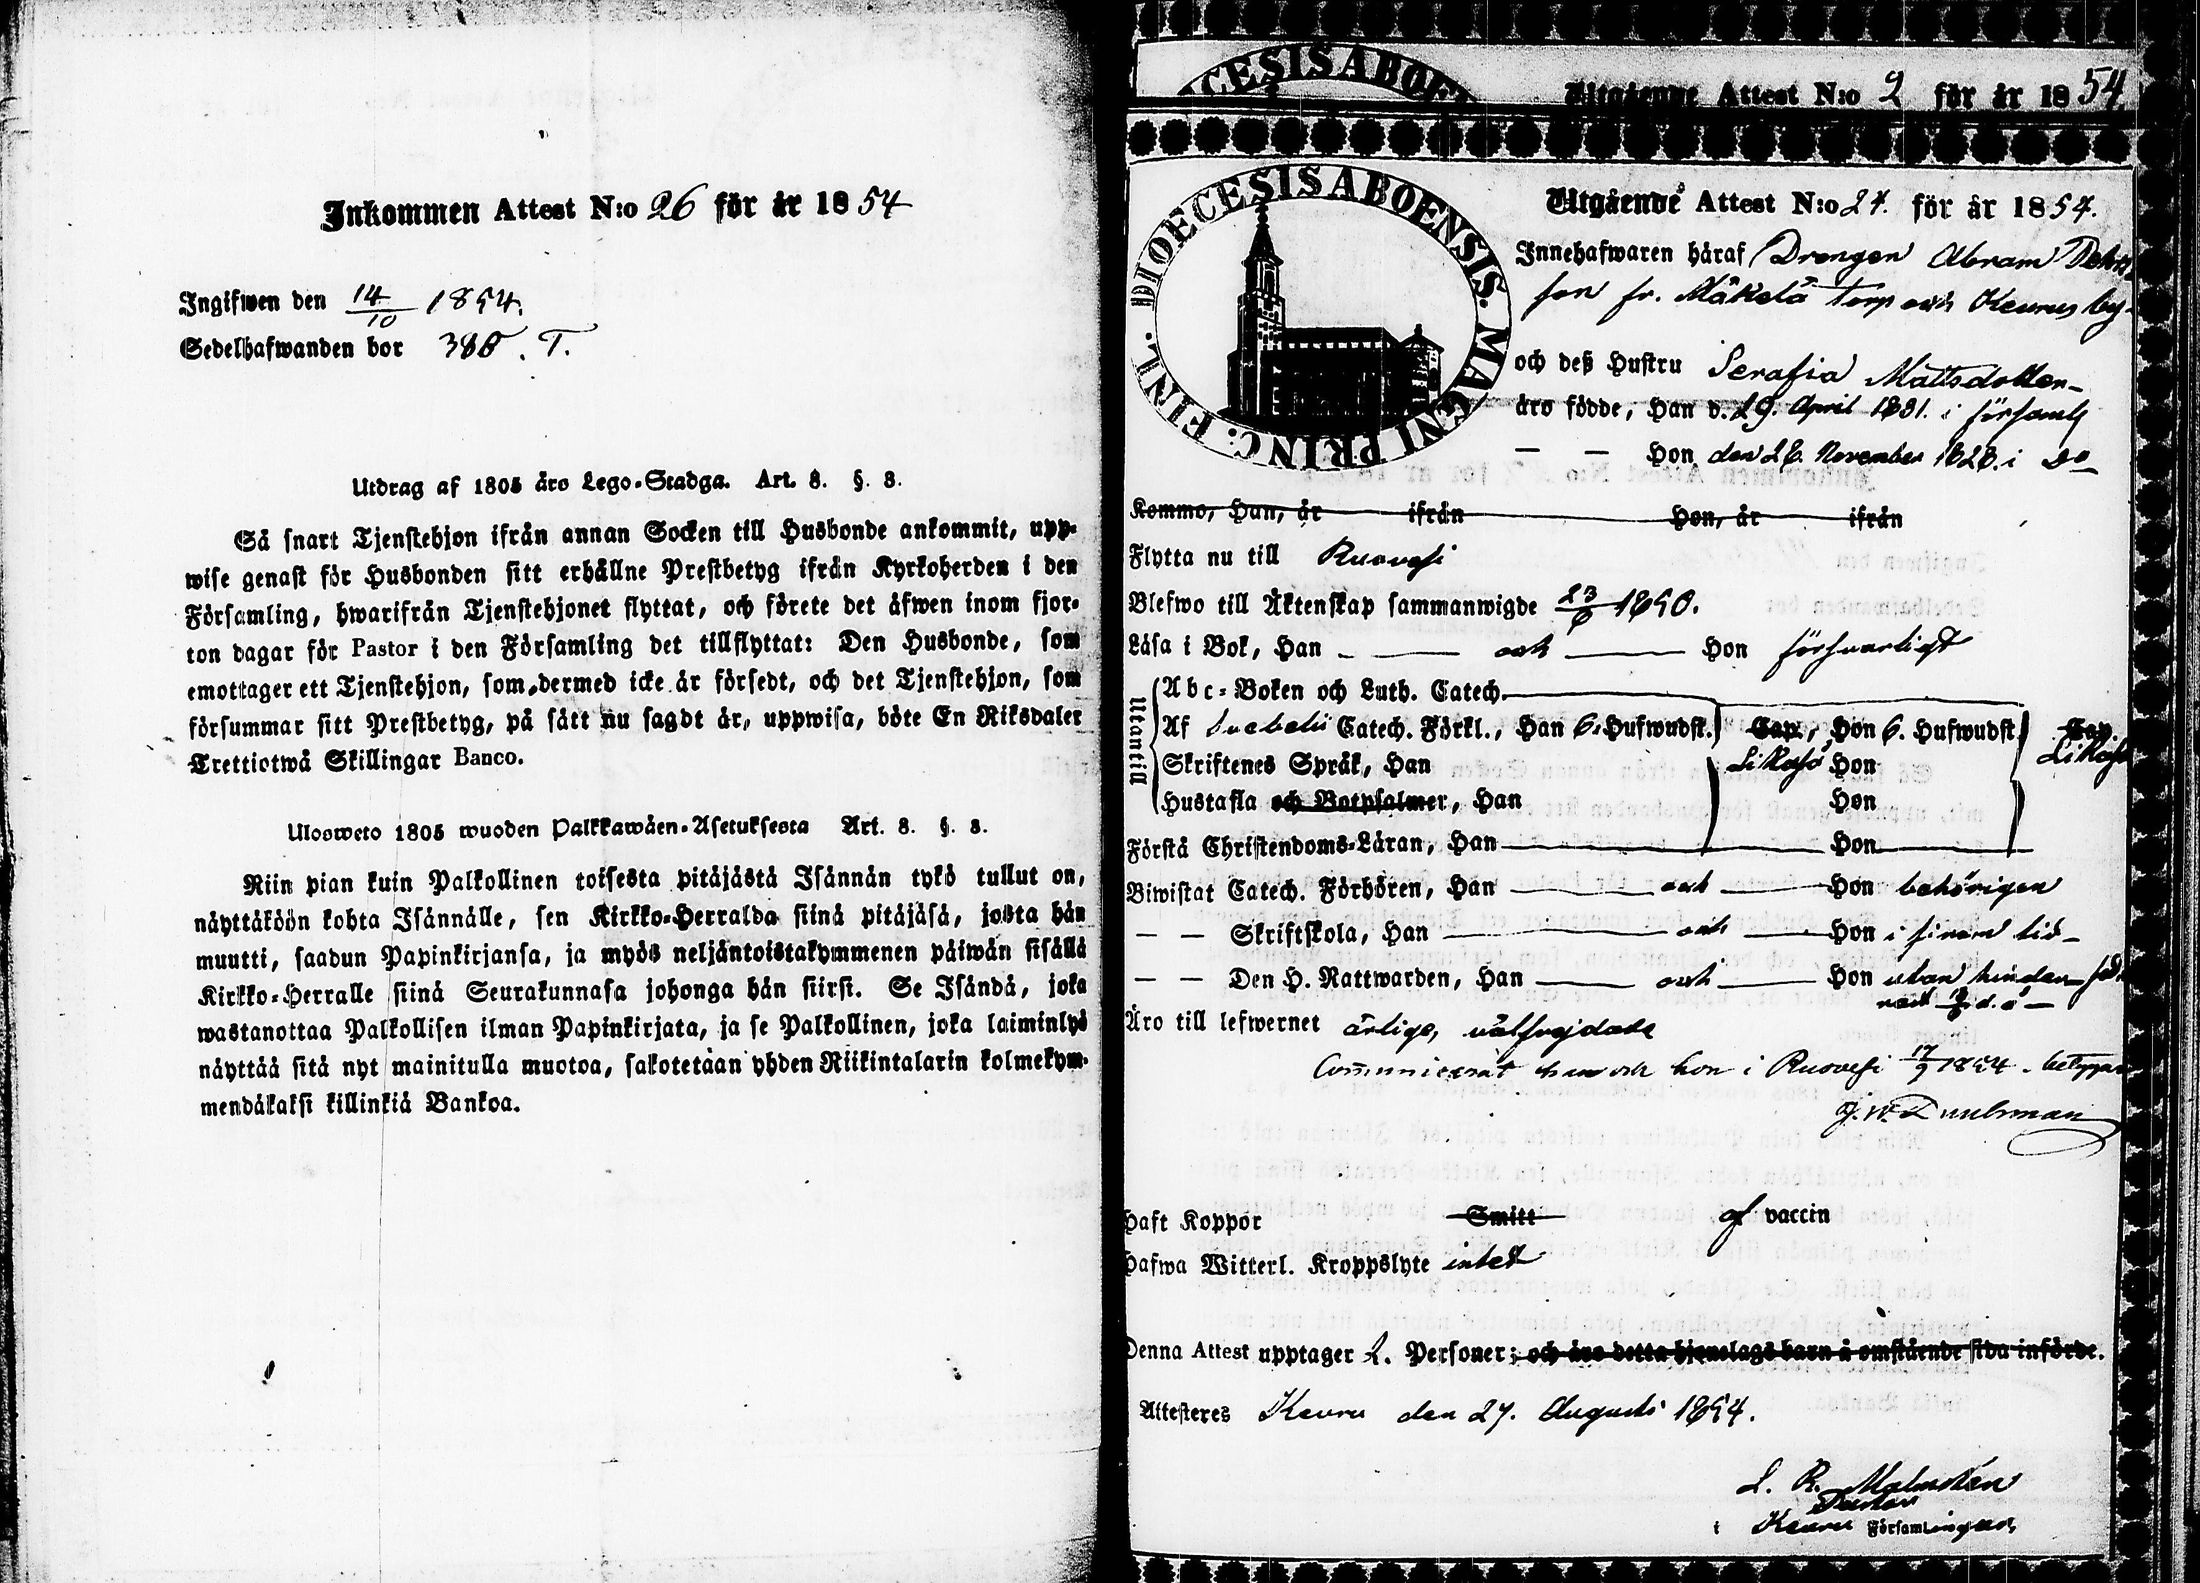 Inkommen Attest N:o 26 för år 1854
Ingifwen den 14/10 1854.
Sedelhafwanden bor 386. T.
Utdrag af 1805 åro Lego-Stadga. Art. 8. §. 8.
Så snart Tjenstehjon ifrån annan Socken till Husbonde ankommit, upp-
wise genast för Husbonden sitt erhållne Prestbetyg ifrån Kyrkoherden i den
Församling, hwarifrån Tjenstehjonet flyttat, och förete det äfwen inom fjor-
ton dagar för Pastor i den Församling det tillflyttat: Den Husbonde, som
emottager ett Tjenstehjon, som dermed icke är försedt, och det Tjenstehjon, som
försummar sitt Prestbetyg, på sätt nu sagdt är, uppwisa, böte En Riksdaler
Trettiotwå Skillingar Banco.
Ulosweto 1805 wuoden Palkkawäen-Asetuksesta Art. 8. §. 8.
Niin pian kuin Palkollinen toisesta pitäjästä Isännän tykö tullut on,
näyttäköön kohta Isännälle, sen Kirkko-Herralda siinä pitäjäsä, josta hän
muutti, saadun Papinkirjansa, ja myös neljäntoistakymmenen päiwän sisällä
Kirkko-Herralle siinä Seurakunnasa johonga hän siirsi. Se Isändä, joka
wastanottaa Palkollisen ilman Papinkirjata, ja se Palkollinen, joka laiminlyö
näyttää sitä nyt mainitulla muotoa, sakotetaan yhden Riikintalarin kolmekym-
mendäkaksi killinkiä Bankoa.
CESIS ABOE
Utgående Attest N:o 2 för år 1854
DIOECESIS ABOENSIS. MAGNI PRINC: FINL.
Utgående Attest N:o 27. för år 1854.
Innehafwaren häraf Drengen Abram
son fr. Mäkelä torp och Keuruu by
och deß Hustru Serafia Mattsdotter
äro födde, Han d. 29. April 1831. i församl
— — Hon den 26. November 1828. i Do
Kommo, Han, år ifrån Hon, år ifrån
Flytta nu till Ruovesi
Blefwo till Äktenskap sammanwigde 23/6 1850.
Läsa i Bok, Han och Hon försvarligt
Utantill
Abc-Boken och Luth. Catech.
Af Svebelii Catech. Förkl., Han 6. Hufwudst. Cap., Hon 6. Hufwudst. Cap.
Skriftenes Språk, Han Likaså Hon Likaså
Hustafla och Botpsalmer, Han Hon
Förstå Christendoms-Läran, Han Hon
Biwistat Catech. Förhören, Han och Hon behörigen
— — Skriftskola, Han och Hon i sinom tid
— — Den H. Nattwarden, Han och Hon utan hinder
Äro till lefwernet ärlige, välfrejdade
Communicerat han och hon i Ruovesi 17/9 1854. betygar
J. W. Durchman
Haft Koppor Smitt af vaccin
Hafwa Witterl. Kroppslyte intet
Denna Attest upptager 2. Personer; och äro detta hjonelags barn å omstående sida införde.
Attesteres Keuru den 27. Augusti 1854.
L. R. Malmstén
Pastor
i Keuru Församlingar